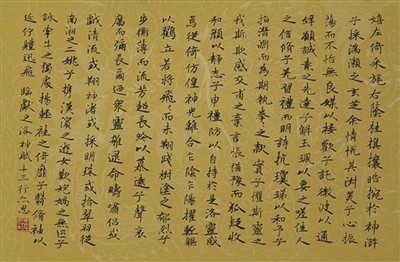 嬉左倚采旄右蔭桂旗攘皓捥於神滸
兮採湍瀨之玄芝余情悅其淑美兮心振
蕩而不怡無良媒以接歡兮託微波以通
辭願誠素之先達兮解玉珮以要之嗟佳人
之信脩兮羌習禮而明詩抗瓊珶以和予兮
指潛淵而為期執拳拳之款實兮懼斯靈之
我欺感交甫之棄言悵猶豫而狐疑收
和顏以靜志兮申禮防以自持於是洛靈感
焉徙倚仿偟神光離合乍陰乍陽擢輕軀
以鶴立若將飛而未翔踐椒塗之郁烈兮
步蘅薄而流芳超長吟以慕遠兮聲哀
厲而彌長爾迺衆靈雜遝命疇嘯侶或
戲清流或翔神渚或採明珠或拾翠羽從
南湘之二姚兮攜漢濱之遊女歎媧之無匹兮
詠牽牛之獨處揚輕袿之倚靡兮翳脩袖以
延佇體迅飛 臨獻之洛神賦十三行